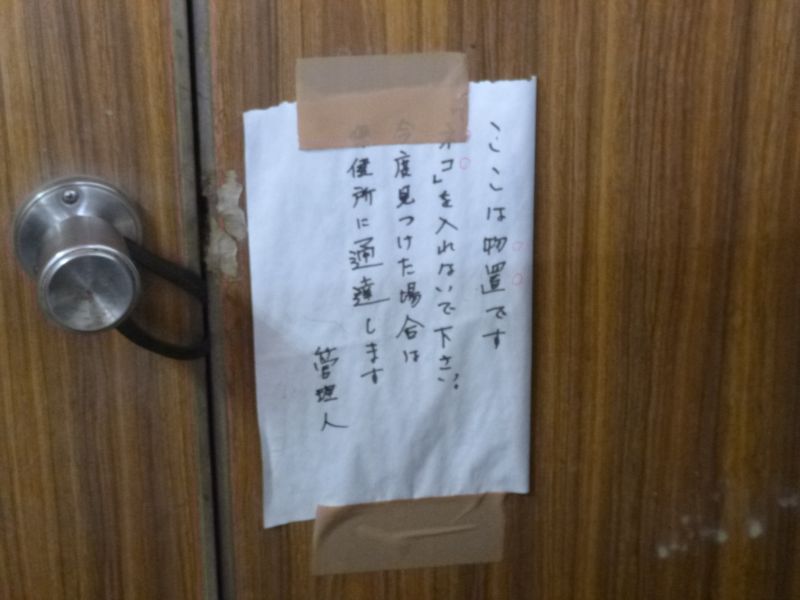 ここは物置です
ネコ」を入れないで下さい!
今度見つけた場合は
保健所に通達します
管理人